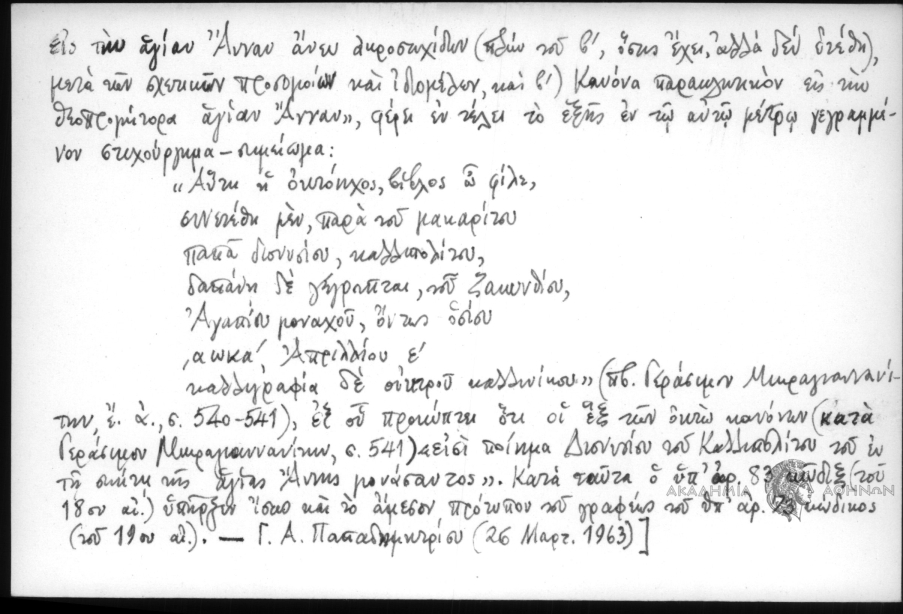 εἰς τὴν ἁγίαν Ἄνναν ἄνευ ἀκροστιχίδων (πλὴν τοῦ β', ὅστις ἔχει, ἀλλὰ δὲν ἐτέθη),
μετὰ τῶν σχετικῶν προσομοίων καὶ ἰδιομέλων, καὶ β') Κανόνα παρακλητικὸν εἰς τὴν
θεοπρομήτορα ἁγίαν Ἄνναν», φέρει ἐν τέλει τὸ ἑξῆς ἐν τῷ αὐτῷ μέτρῳ γεγραμμέ-
νον στιχούργημα – σημείωμα:
«Αὕτη ἡ ὀκτώηχος, βίβλος ὦ φίλε,
συνετέθη μὲν, παρὰ τοῦ μακαρίτου
παπᾶ διονυσίου, καλλιπολίτου,
δαπάνῃ δὲ γέγραπται, τοῦ Ζακυνθίου,
Ἀγαπίου μοναχοῦ, ὄντως ὁσίου
͵αωκα' Ἀπριλλίου ε'
καλλιγραφία δὲ οἰκτροῦ καλλινίκου» (πβ. Γεράσιμον Μικραγιαννανί-
την, ἔ. ἀ., σ. 540-541), ἐξ οὗ προκύπτει ὅτι οἱ ἓξ τῶν ὀκτὼ κανόνων (κατὰ
Γεράσιμον Μικραγιαννανίτην, σ. 541) «εἰσὶ ποίημα Διονυσίου τοῦ Καλλιπολίτου τοῦ ἐν
τῇ σκήτῃ τῆς ἁγίας Ἄννης μονάσαντος». Κατὰ ταῦτα ὁ ὑπ' ἀρ. 83 κῶδιξ (τοῦ
18ου αἰ.) ὑπῆρξεν ἴσως καὶ τὸ ἄμεσον πρότυπον τοῦ γραφέως τοῦ ὑπ' ἀρ. 73 κώδικος
(τοῦ 19ου αἰ.). — Γ. Α. Παπαδημητρίου (26 Μαρτ. 1963)]
ΑΚΑΔΗΜΙΑ ΑΘΗΝΩΝ